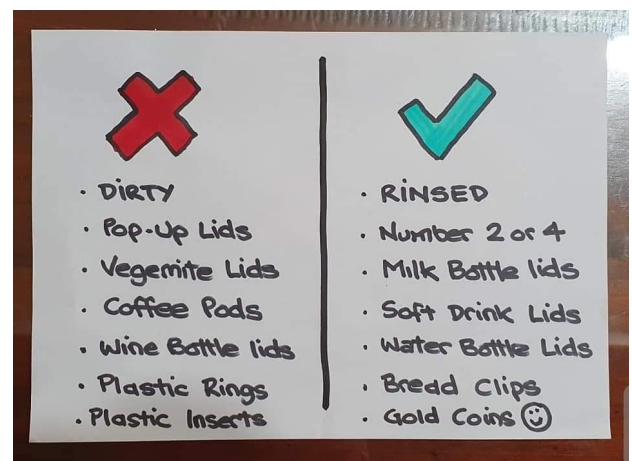 · DIRTY
· Pop-Up Lids
· Vegemite Lids
· Coffee Pods
· Wine Bottle lids
· Plastic Rings
· Plastic Inserts
· RINSED
· Number 2 or 4
· Milk Bottle lids
· Soft Drink Lids
· Water Bottle Lids
· Bread Clips
· Gold Coins ☺